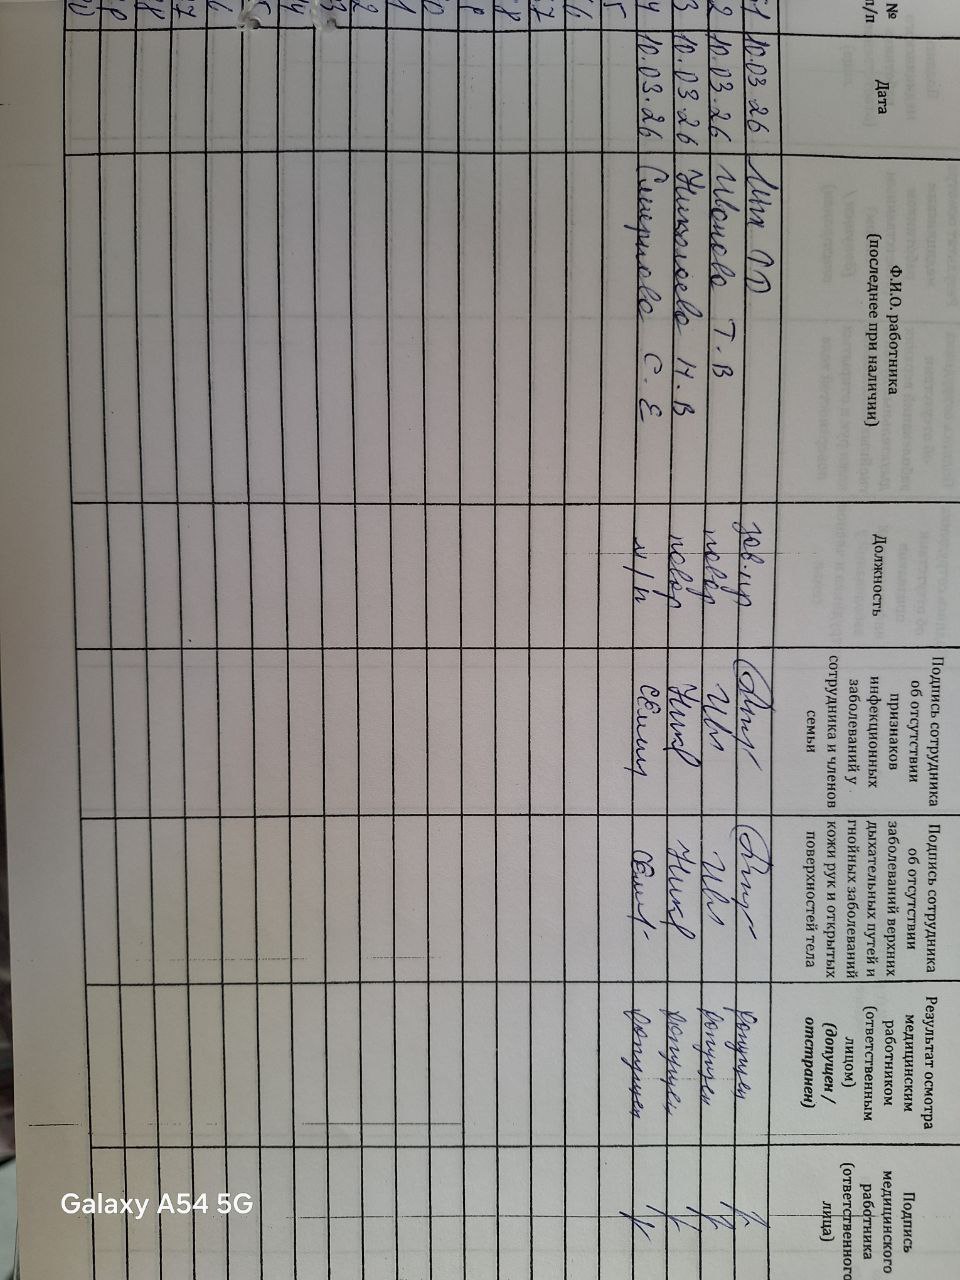 № п/п
Дата
Ф.И.О. работника (последнее при наличии)
Должность
Подпись сотрудника об отсутствии признаков инфекционных заболеваний у сотрудника и членов семьи
Подпись сотрудника об отсутствии заболеваний верхних дыхательных путей и гнойных заболеваний кожи рук и открытых поверхностей тела
Результат осмотра медицинским работником (ответственным лицом) (допущен / отстранен)
Подпись медицинского работника (ответственного лица)
1 10.03 26 зав.пр допущен
2 10.03.26 Иванова Т.В повар Ив допущен
3 10.03.26 Николаева Н.В повар Ник Ник допущен
4 10.03.26 Смирнова С.Е м/п допущен
5
6
7
8
9
0
1
2
3
4
5
6
7
8
9
0
Galaxy A54 5G